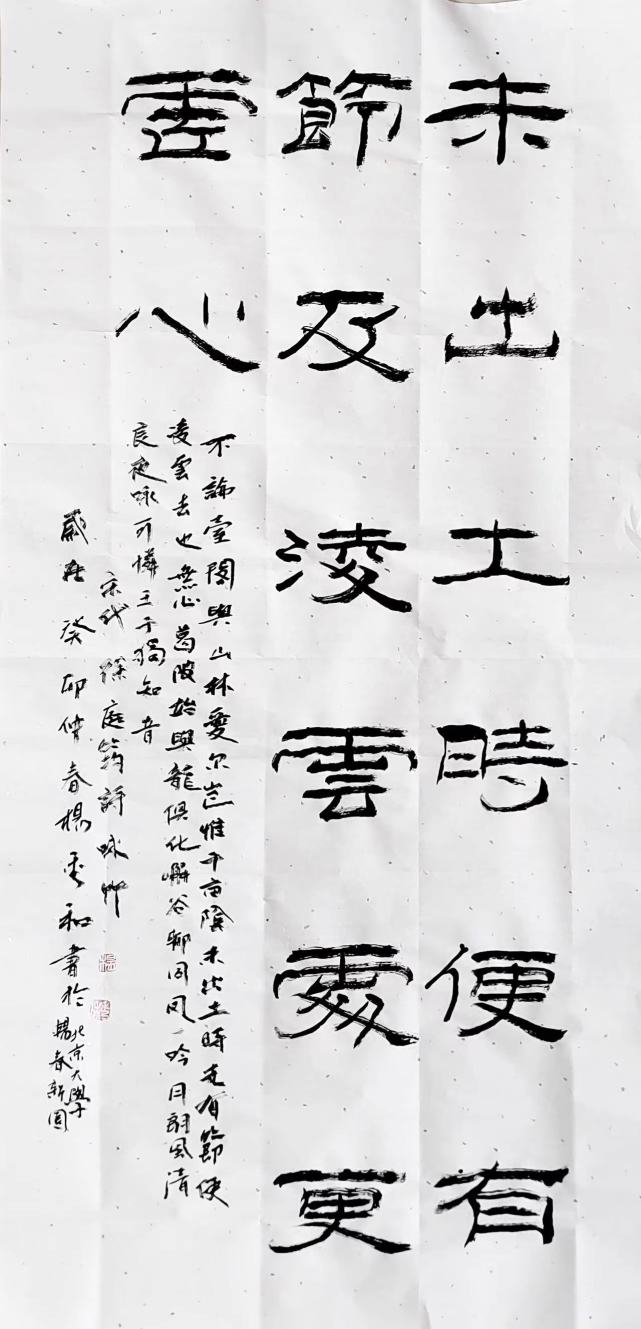 未出土時便有
節及淩雲處更
虛心
不論臺閣與山林愛尔豈惟千亩陰未出土時先有節便
凌雲去也無心葛陂始與龍俱化嶰谷鄉同凤一吟月朗風清
良夜永可憐王子獨知音
宋代徐庭筠詩咏竹
歲在癸卯仲春楊秉和書於
北京大學
暢春新園